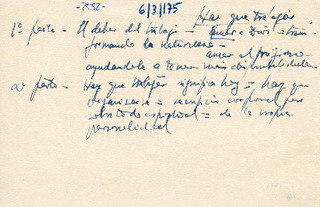 -2552-
6/3/75
Hay que trabajar
1º parte - El deber del trabajo =
amar a Dios = trans
formando la naturaleza -
amar al prójimo =
ayudándole a tener más
2º parte - Hay que trabajar significa hoy = hay que
organizarse = sacrificio corporal por
= de la propia
personalidad